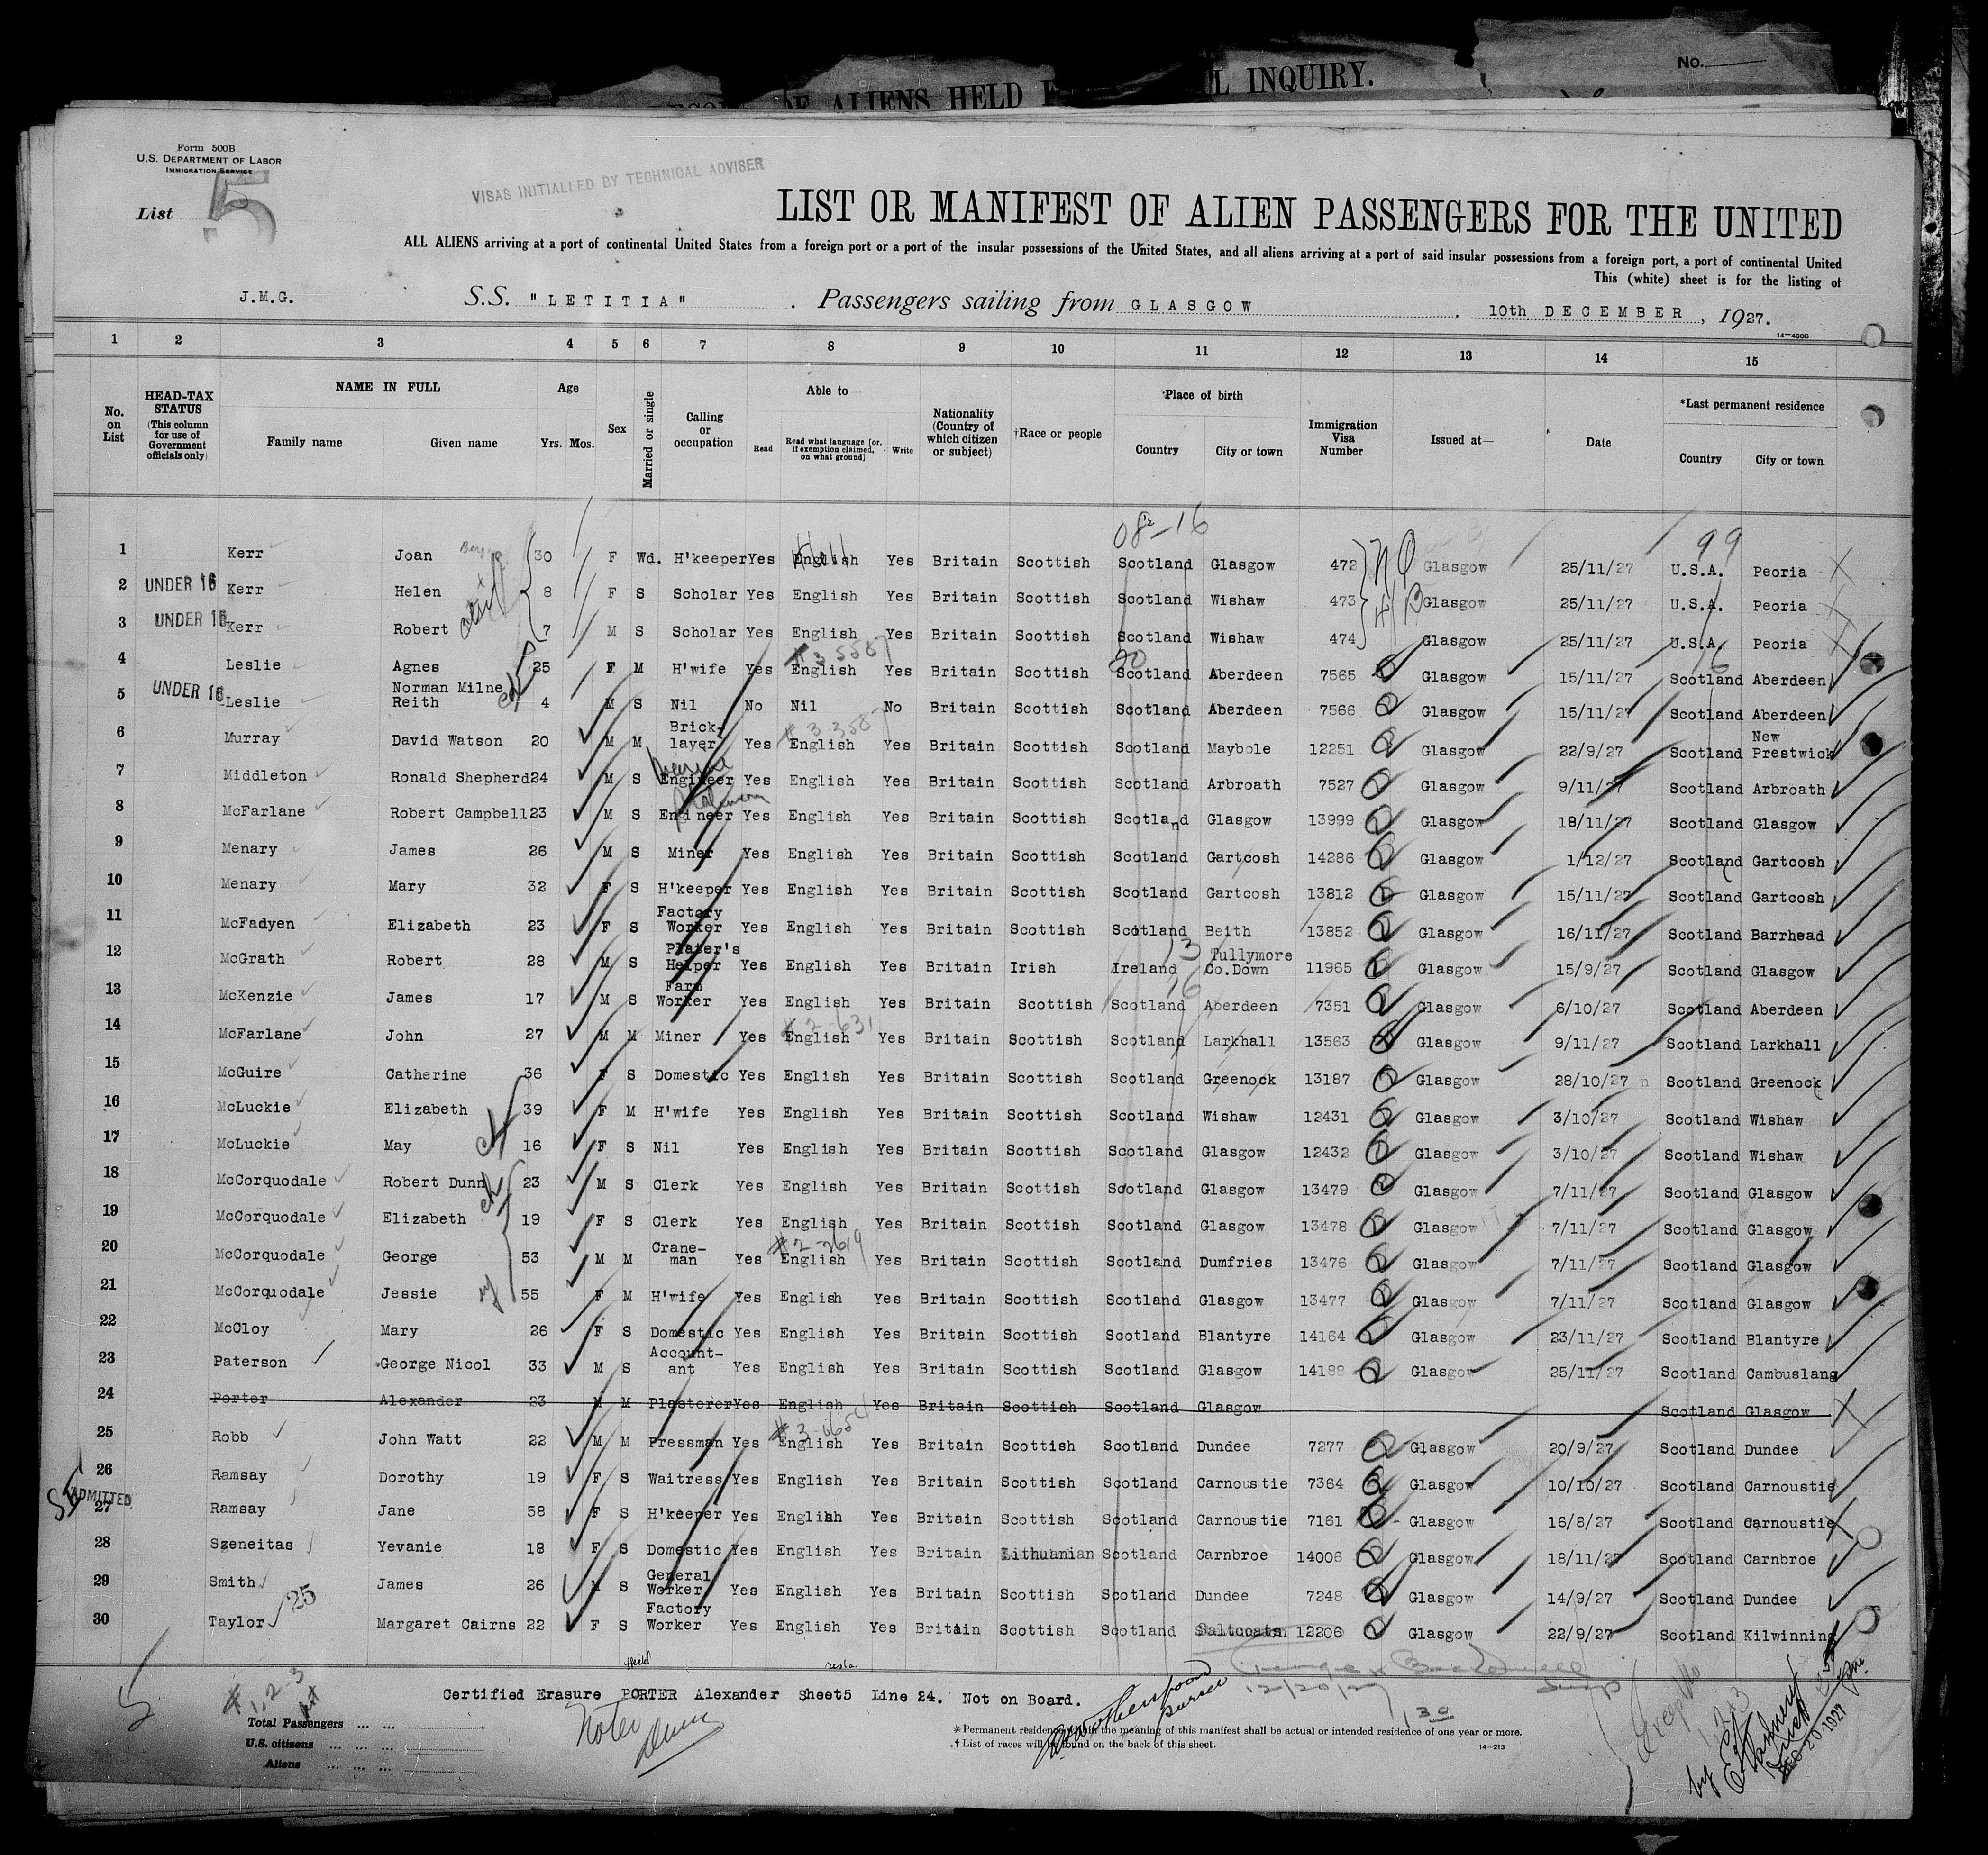 OF ALIENS HELD L INQUIRY.
No.
Form 500B
U.S. DEPARTMENT OF LABOR
IMMIGRATION SERVICE
List 5
VISAS INITIALLED BY TECHNICAL ADVISER
LIST OR MANIFEST OF ALIEN PASSENGERS FOR THE UNITED
ALL ALIENS arriving at a port of continental United States from a foreign port or a port of the insular possessions of the United States, and all aliens arriving at a port of said insular possessions from a foreign port, a port of continental United
This (white) sheet is for the listing of
J.M.G. S.S. "LETITIA" . Passengers sailing from GLASGOW , 10th DECEMBER , 1927.
14-430B
1 2 3 4 5 6 7 8 9 10 11 12 13 14 15
No. on List HEAD-TAX STATUS (This column for use of Government officials only) NAME IN FULL Family name Given name Age Yrs. Mos. Sex Married or single Calling or occupation Able to Read Read what language [or, if exemption claimed, on what ground] Write Nationality (Country of which citizen or subject) †Race or people *Place of birth Country City or town Immigration Visa Number Issued at— Date *Last permanent residence Country City or town
08-16 99
1 Kerr Joan 30 F Wd. H'keeper Yes English Yes Britain Scottish Scotland Glasgow 472 Glasgow 25/11/27 U.S.A. Peoria
2 UNDER 16 Kerr Helen 8 F S Scholar Yes English Yes Britain Scottish Scotland Wishaw 473 Glasgow 25/11/27 U.S.A. Peoria
3 UNDER 16 Kerr Robert 7 M S Scholar Yes English Yes Britain Scottish Scotland Wishaw 474 Glasgow 25/11/27 U.S.A. Peoria
4 Leslie Agnes 25 F M H'wife Yes English Yes Britain Scottish Scotland Aberdeen 7565 Glasgow 15/11/27 Scotland Aberdeen
5 UNDER 16 Leslie Norman Milne Reith 4 M S Nil No Nil No Britain Scottish Scotland Aberdeen 7566 Glasgow 15/11/27 Scotland Aberdeen
6 Murray David Watson 20 M M Brick-layer Yes English Yes Britain Scottish Scotland Maybole 12251 Glasgow 22/9/27 Scotland New Prestwick
7 Middleton Ronald Shepherd 24 M S Engineer Yes English Yes Britain Scottish Scotland Arbroath 7527 Glasgow 9/11/27 Scotland Arbroath
8 McFarlane Robert Campbell 23 M S Engineer Yes English Yes Britain Scottish Scotland Glasgow 13999 Glasgow 18/11/27 Scotland Glasgow
9 Menary James 26 M S Miner Yes English Yes Britain Scottish Scotland Gartcosh 14286 Glasgow 1/12/27 Scotland Gartcosh
10 Menary Mary 32 F S H'keeper Yes English Yes Britain Scottish Scotland Gartcosh 13812 Glasgow 15/11/27 Scotland Gartcosh
11 McFadyen Elizabeth 23 F S Factory Worker Yes English Yes Britain Scottish Scotland Beith 13852 Glasgow 16/11/27 Scotland Barrhead
12 McGrath Robert 28 M S Plater's Helper Yes English Yes Britain Irish Ireland Tullymore Co.Down 11965 Glasgow 15/9/27 Scotland Glasgow
13 McKenzie James 17 M S Farm Worker Yes English Yes Britain Scottish Scotland Aberdeen 7351 Glasgow 6/10/27 Scotland Aberdeen
14 McFarlane John 27 M M Miner Yes English Yes Britain Scottish Scotland Larkhall 13563 Glasgow 9/11/27 Scotland Larkhall
15 McGuire Catherine 36 F S Domestic Yes English Yes Britain Scottish Scotland Greenock 13187 Glasgow 28/10/27 Scotland Greenock
16 McLuckie Elizabeth 39 F M H'wife Yes English Yes Britain Scottish Scotland Wishaw 12431 Glasgow 3/10/27 Scotland Wishaw
17 McLuckie May 16 F S Nil Yes English Yes Britain Scottish Scotland Glasgow 12432 Glasgow 3/10/27 Scotland Wishaw
18 McCorquodale Robert Dunn 23 M S Clerk Yes English Yes Britain Scottish Scotland Glasgow 13479 Glasgow 7/11/27 Scotland Glasgow
19 McCorquodale Elizabeth 19 F S Clerk Yes English Yes Britain Scottish Scotland Glasgow 13478 Glasgow 7/11/27 Scotland Glasgow
20 McCorquodale George 53 M M Crane-man Yes English Yes Britain Scottish Scotland Dumfries 13476 Glasgow 7/11/27 Scotland Glasgow
21 McCorquodale Jessie 55 F M H'wife Yes English Yes Britain Scottish Scotland Glasgow 13477 Glasgow 7/11/27 Scotland Glasgow
22 McCloy Mary 26 F S Domestic Yes English Yes Britain Scottish Scotland Blantyre 14164 Glasgow 23/11/27 Scotland Blantyre
23 Paterson George Nicol 33 M S Account-ant Yes English Yes Britain Scottish Scotland Glasgow 14188 Glasgow 25/11/27 Scotland Cambuslang
24 Porter Alexander 23 M M Plasterer Yes English Yes Britain Scottish Scotland Glasgow Scotland Glasgow
25 Robb John Watt 22 M M Pressman Yes English Yes Britain Scottish Scotland Dundee 7277 Glasgow 20/9/27 Scotland Dundee
26 Ramsay Dorothy 19 F S Waitress Yes English Yes Britain Scottish Scotland Carnoustie 7364 Glasgow 10/10/27 Scotland Carnoustie
ADMITTED
27 Ramsay Jane 58 F S H'keeper Yes English Yes Britain Scottish Scotland Carnoustie 7161 Glasgow 16/8/27 Scotland Carnoustie
28 Szeneitas Yevanie 18 F S Domestic Yes English Yes Britain Lithuanian Scotland Carnbroe 14006 Glasgow 18/11/27 Scotland Carnbroe
29 Smith James 26 M S General Worker Yes English Yes Britain Scottish Scotland Dundee 7248 Glasgow 14/9/27 Scotland Dundee
30 Taylor 25 Margaret Cairns 22 F S Factory Worker Yes English Yes Britain Scottish Scotland Saltcoats 12206 Glasgow 22/9/27 Scotland Kilwinning
Certified Erasure PORTER Alexander Sheet5 Line 24. Not on Board.
12/20/27
Purser
Total Passengers
U.S. citizens
Aliens
* Permanent residence within the meaning of this manifest shall be actual or intended residence of one year or more.
† List of races will be found on the back of this sheet.
14-213
DEC 20 1927